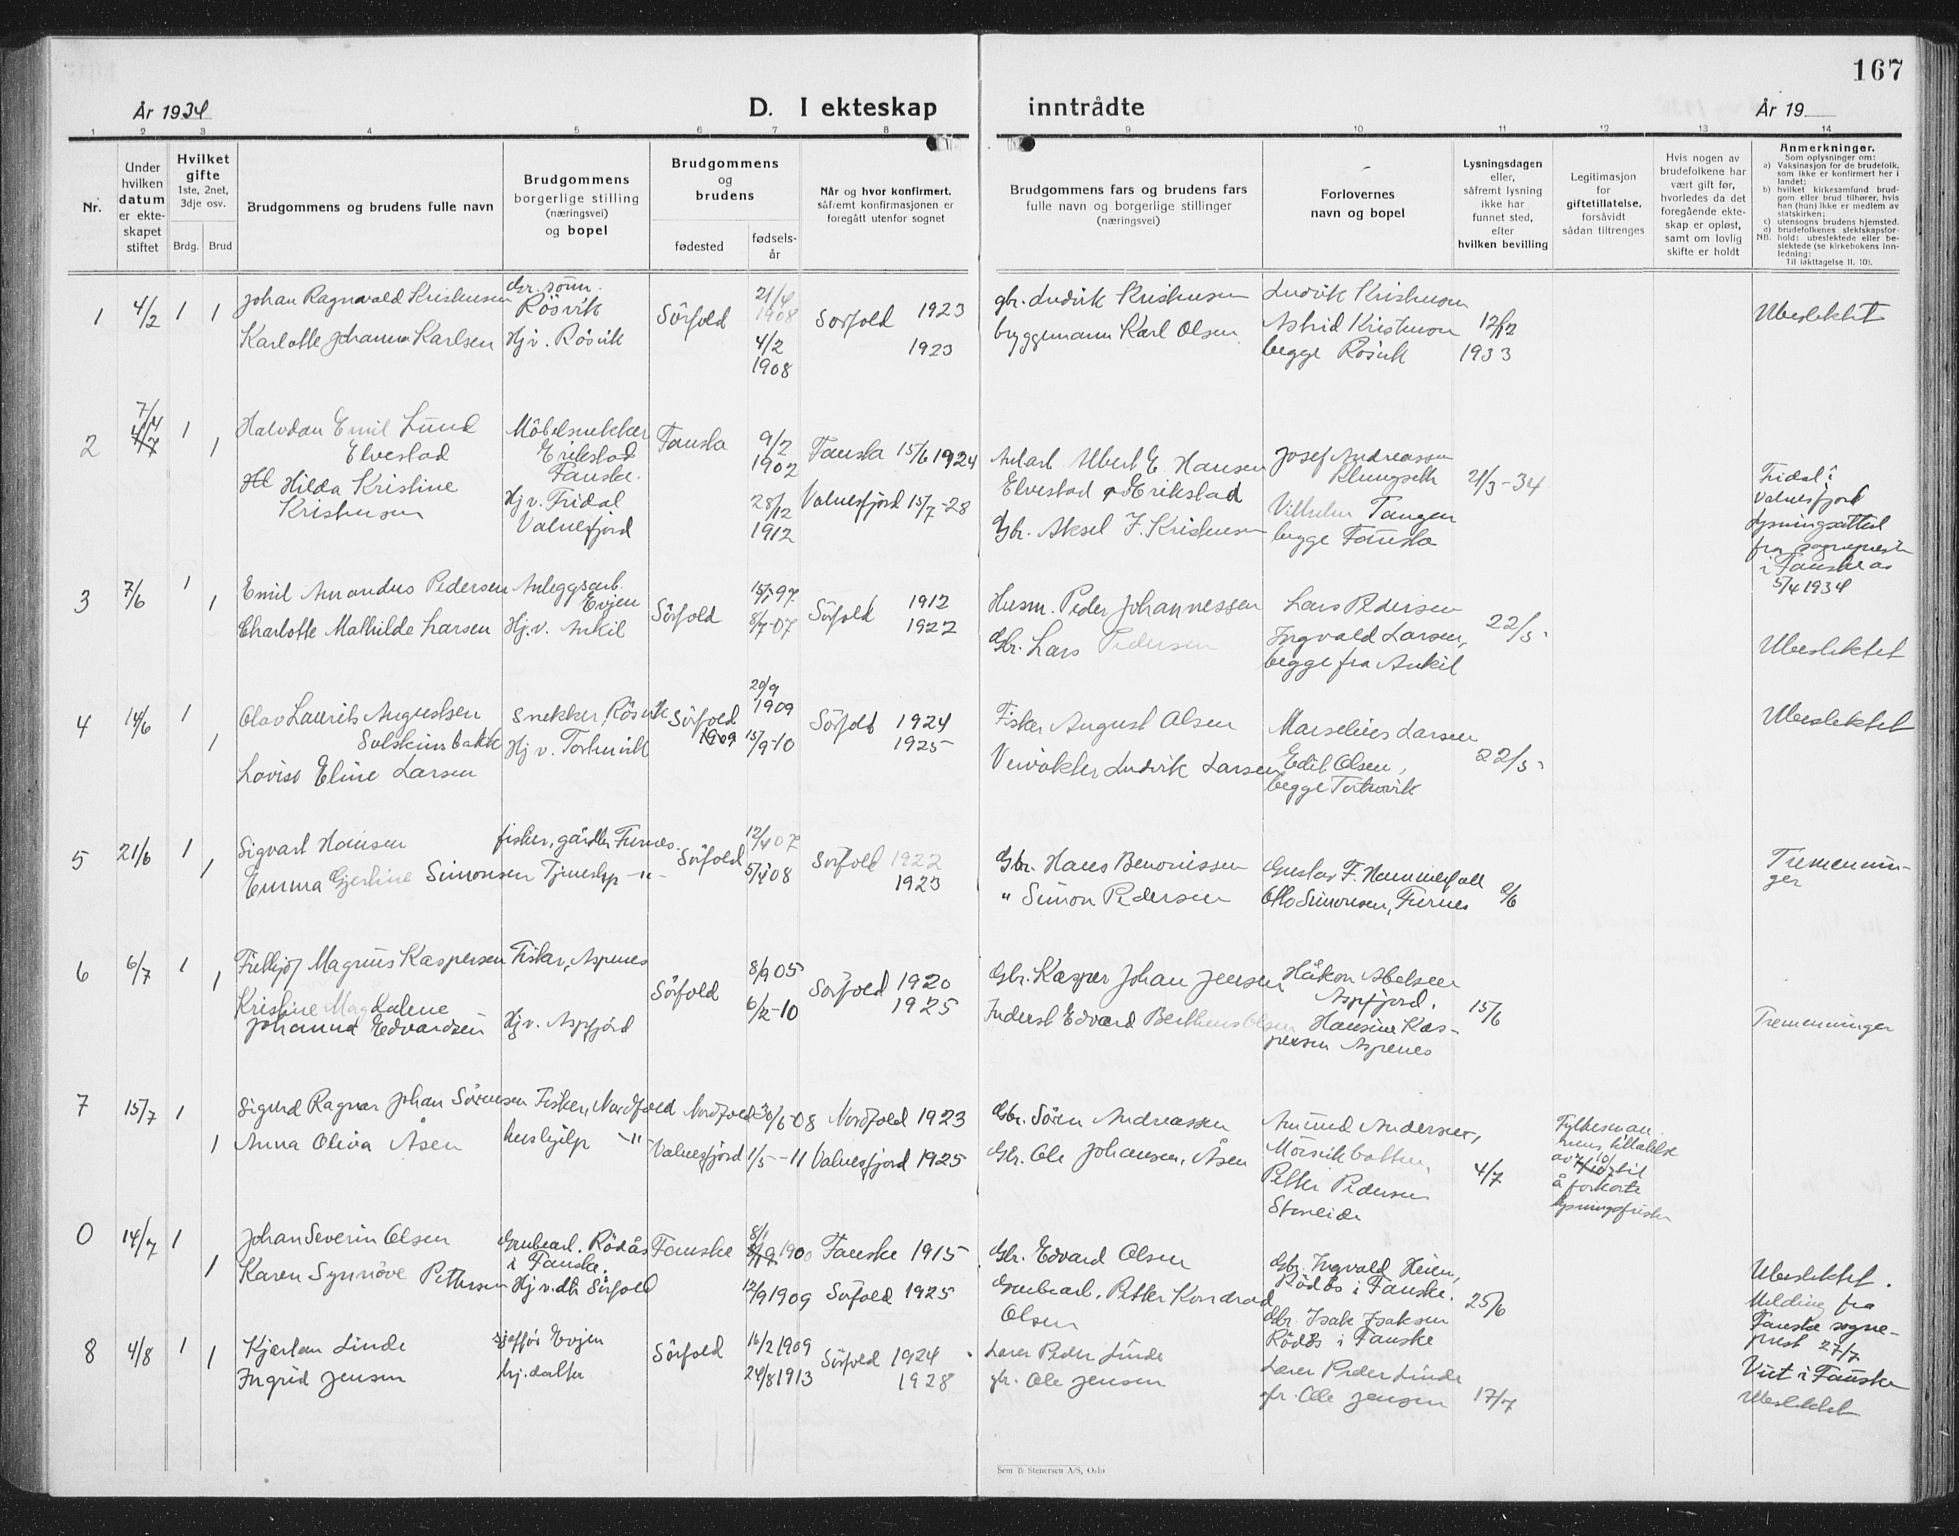 167
År 1934
D. I ekteskap
inntrådte
År 19
1 2 3 4 5 6 7 8 9 10 11 12 13 14
Nr.
Under
hvilken
datum
er ekte-
skapet
stiftet
Hvilket
gifte
1ste, 2net,
3dje osv.
Brdg. Brud
Brudgommens og brudens fulle navn
Brudgommens
borgerlige stilling
(næringsvei)
og bopel
Brudgommens
og
brudens
fødested
fødsels-
år
Når og hvor konfirmert,
såfremt konfirmasjonen er
foregått utenfor sognet
Brudgommens fars og brudens fars
fulle navn og borgerlige stillinger
(næringsvei)
Forlovernes
navn og bopel
Lysningsdagen
eller,
såfremt lysning
ikke har
funnet sted,
efter
hvilken bevilling
Legitimasjon
for
giftetillatelse,
forsåvidt
sådan tiltrenges
Hvis nogen av
brudefolkene har
vært gift før,
hvorledes da det
foregående ekte-
skap er opløst,
samt om lovlig
skifte er holdt
Anmerkninger.
Som oplysninger om:
a) Vaksinasjon for de brudefolk,
som ikke er konfirmert her i
landet;
b) hvilket kirkesamfund brud-
gom eller brud tilhører, hvis
han (hun) ikke er medlem av
statskirken;
c) utensogns brudens hjemsted.
d) brudefolkenes slektskapsfor-
NB. hold: ubeslektede eller be-
slektede (se kirkebokens inn-
ledning:
Til iakttagelse II. 10).
1 4/2 1 1
Johan Ragnvald Kristensen
Gbr. sønn.
Rösvik
Karlotte Johanna Karlsen Hj v. Rösvik
Sörfold
21/4
1908
4/2
1908
Sörfold 1923
1923
gbr. Ludvik Kristensen
byggemann Karl Olsen
Ludvik Kristensen
Astrid Kristensen
begge Rösvik
12/12
1933
Ubeslektet
2 7/4 1 1
Halvdan Emil Lund
Elvestad
Hilda Kristine
Kristensen
Möbelsnekker
Erikstad
Fauske.
Hj v. Fridal
Valnesfjord
Fauske
9/2
1902
28/12
1912
Fauske 15/6 1924
Valnesfjord 15/7-28
Albert E. Hansen
Elvestad Erikstad
Gbr. Aksel J. Kristensen
Josef Andreassen
Klungseth
Vilhelm Tangen
begge Fauske
21/3-34
Fridal i
Valnesfjord
Lysningsattest
fra sogneprest
i Fauske av
5/4 1934
3 7/6 1 1
Emil Amandus Pedersen Anleggsarb.
Evjen
Charlotte Mathilde Larsen Hj.v. Ankil
Sörfold
8/7-07
Sörfold 1912
1922
Husm. Peder Johannessen
Gbr. Lars Pedersen
Lars Pedersen
Ingvald Larsen,
begge fra Ankil
22/5
Ubeslektet
4 14/6 1 1
Olav Laurits Augustsen
Solskinsbakk
Lovise Eline Larsen
Snekker, Rösvik
Hj v. Torkevik
Sörfold
1909
20/9
1909
15/9-10
Sörfold 1924
1925
Fisker August Olsen
Veivokter Ludvik Larsen
Marselius Larsen
Edit Olsen,
begge Torkevik
22/5
Ubeslektet
5 21/6 1 1
Sigvart Hansen fisker, Furnes.
Emma Gjertine Simonsen
Sörfold
12/4 07
5/4 08
Sörfold 1922
1923
Gbr. Hans Benonissen
" Simon Pedersen
Gustav F. Hammerfall
Otto Simonsen, Furnes
Tremennin-
ger
6 6/7 1 1
Fritkjof Magnus Kaspersen Fisker, Aspenes
Kristine Magdalene
Johanna Edvardsen Hj v. Aspfjord
Sörfold
8/9 05
6/12-10
Sörfold 1920
1925
Gbr. Kasper Johan Jensen
Inderst Edvard Berthens Olsen
Håkon Abelsen
Aspfjord.
Hansine Kas-
persen Aspenes
15/6
Tremenninger
7 15/7 1 1
Sigurd Ragnar Johan Sörensen Fisker, Nordfold
Anna Oliva Åsen hushjelp -"-
Nordfold 30/6-08
Valnesfjord 1/5-11
Nordfold 1923
Valnesfjord 1925
Gbr. Sören Andreassen
Gbr. Ole Johansen, Åsen
Amund Andersen,
Mörsvikbotten,
Petter Pedersen
Storeide
4/7
Fylkesman-
nens tillatelse
av 10/7 til
å forkorte
lysningsfristen
0 14/7 1 1
Johan Severin Olsen
Karen Synnöve Pettersen
Grubearb. Rödås
i Fauske.
Hj v. dtr Sörfold
Fauske
8/1 1900
12/9 1909
Fauske 1915
Sörfold 1925
Gbr. Edvard Olsen
Grubearb. Petter Konrad
Olsen
Gbr. Ingvald Heien,
Rödås i Fauske.
Gbr. Isak Isaksen
Rödås i Fauske
25/6
Ubeslektet.
Melding fra
Fauske sogne-
prest 27/7
Viet i Fauske
8 4/8 1 1
Kjartan Linde
Ingrid Jensen
sjafför Evjen
hj. datter
Sörfold
16/2 1909
24/8 1913
Sörfold 1924
1928
Lærer Peder Linde
gbr. Ole Jensen
Lærer Peder Linde
gbr. Ole Jensen
17/7
Ubeslektet
Sem & Stenersen A/S, Oslo